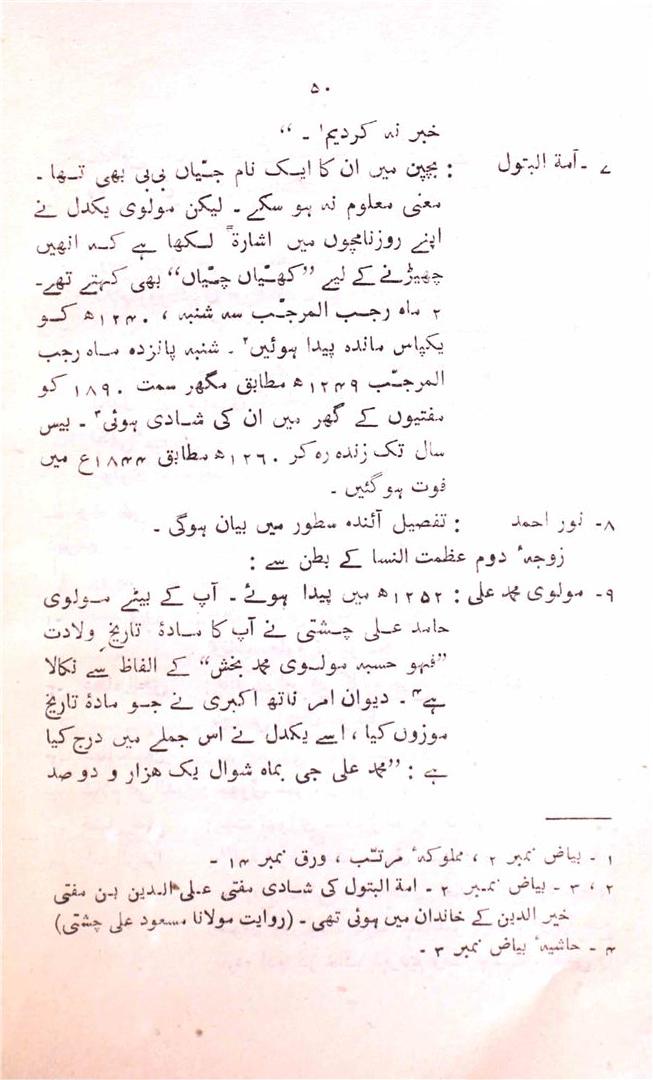 ۵۰
خبر نہ کردیم۱ ۔ “
۷ ۔ آمة البتول : بچپن میں ان کا ایک نام جتیاں بی بی بھی تھا ۔
معنی معلوم نہ ہو سکے ۔ لیکن مولوی یکدل نے
اپنے روزنامچوں میں اشارۃً لکھا ہے کہ انھیں
چھیڑنے کے لیے ”کھتیاں چتیاں“ بھی کہتے تھے۔
۲ ماہ رجب المرجّب سہ شنبہ ، ۱۲۴۰ھ کو
یکپاس ماندہ پیدا ہوئیں۲ ۔ شنبہ پانزدہ ماہ رجب
المرجّب ۱۲۴۹ھ مطابق مگھر سمت ۱۸۹۰ کو
مفتیوں کے گھر میں ان کی شادی ہوئی۳ ۔ بیس
سال تک زندہ رہ کر ۱۲۶۰ھ مطابق ۱۸۴۴ع میں
فوت ہو گئیں ۔
۸۔ نور احمد : تفصیل آئندہ سطور میں بیان ہوگی ۔
زوجۂ دوم عظمت النسا کے بطن سے :
۹۔ مولوی محمد علی : ۱۲۵۲ھ میں پیدا ہوئے ۔ آپ کے بیٹے مولوی
حامد علی چشتی نے آپ کا مادۂ تاریخِ ولادت
”فہو حسبہ مولوی محمد بخش“ کے الفاظ سے نکالا
ہے۴ ۔ دیوان امر ناتھ اکبری نے جو مادۂ تاریخ
موزوں کیا ، اسے یکدل نے اس جملے میں درج کیا
ہے : ”محمد علی جی بماہ شوال یک ہزار و دو صد
۱ ۔ بیاض نمبر ۲ ، مملوکۂ مرتّب ، ورق نمبر ۱۴ ۔
۲ ، ۳ ۔ بیاض نمبر ۲ ۔ امة البتول کی شادی مفتی علی الدین بن مفتی
خیر الدین کے خاندان میں ہوئی تھی ۔ (روایت مولانا مسعود علی چشتی)
۴ ۔ حاشیۂ بیاض نمبر ۳ ۔